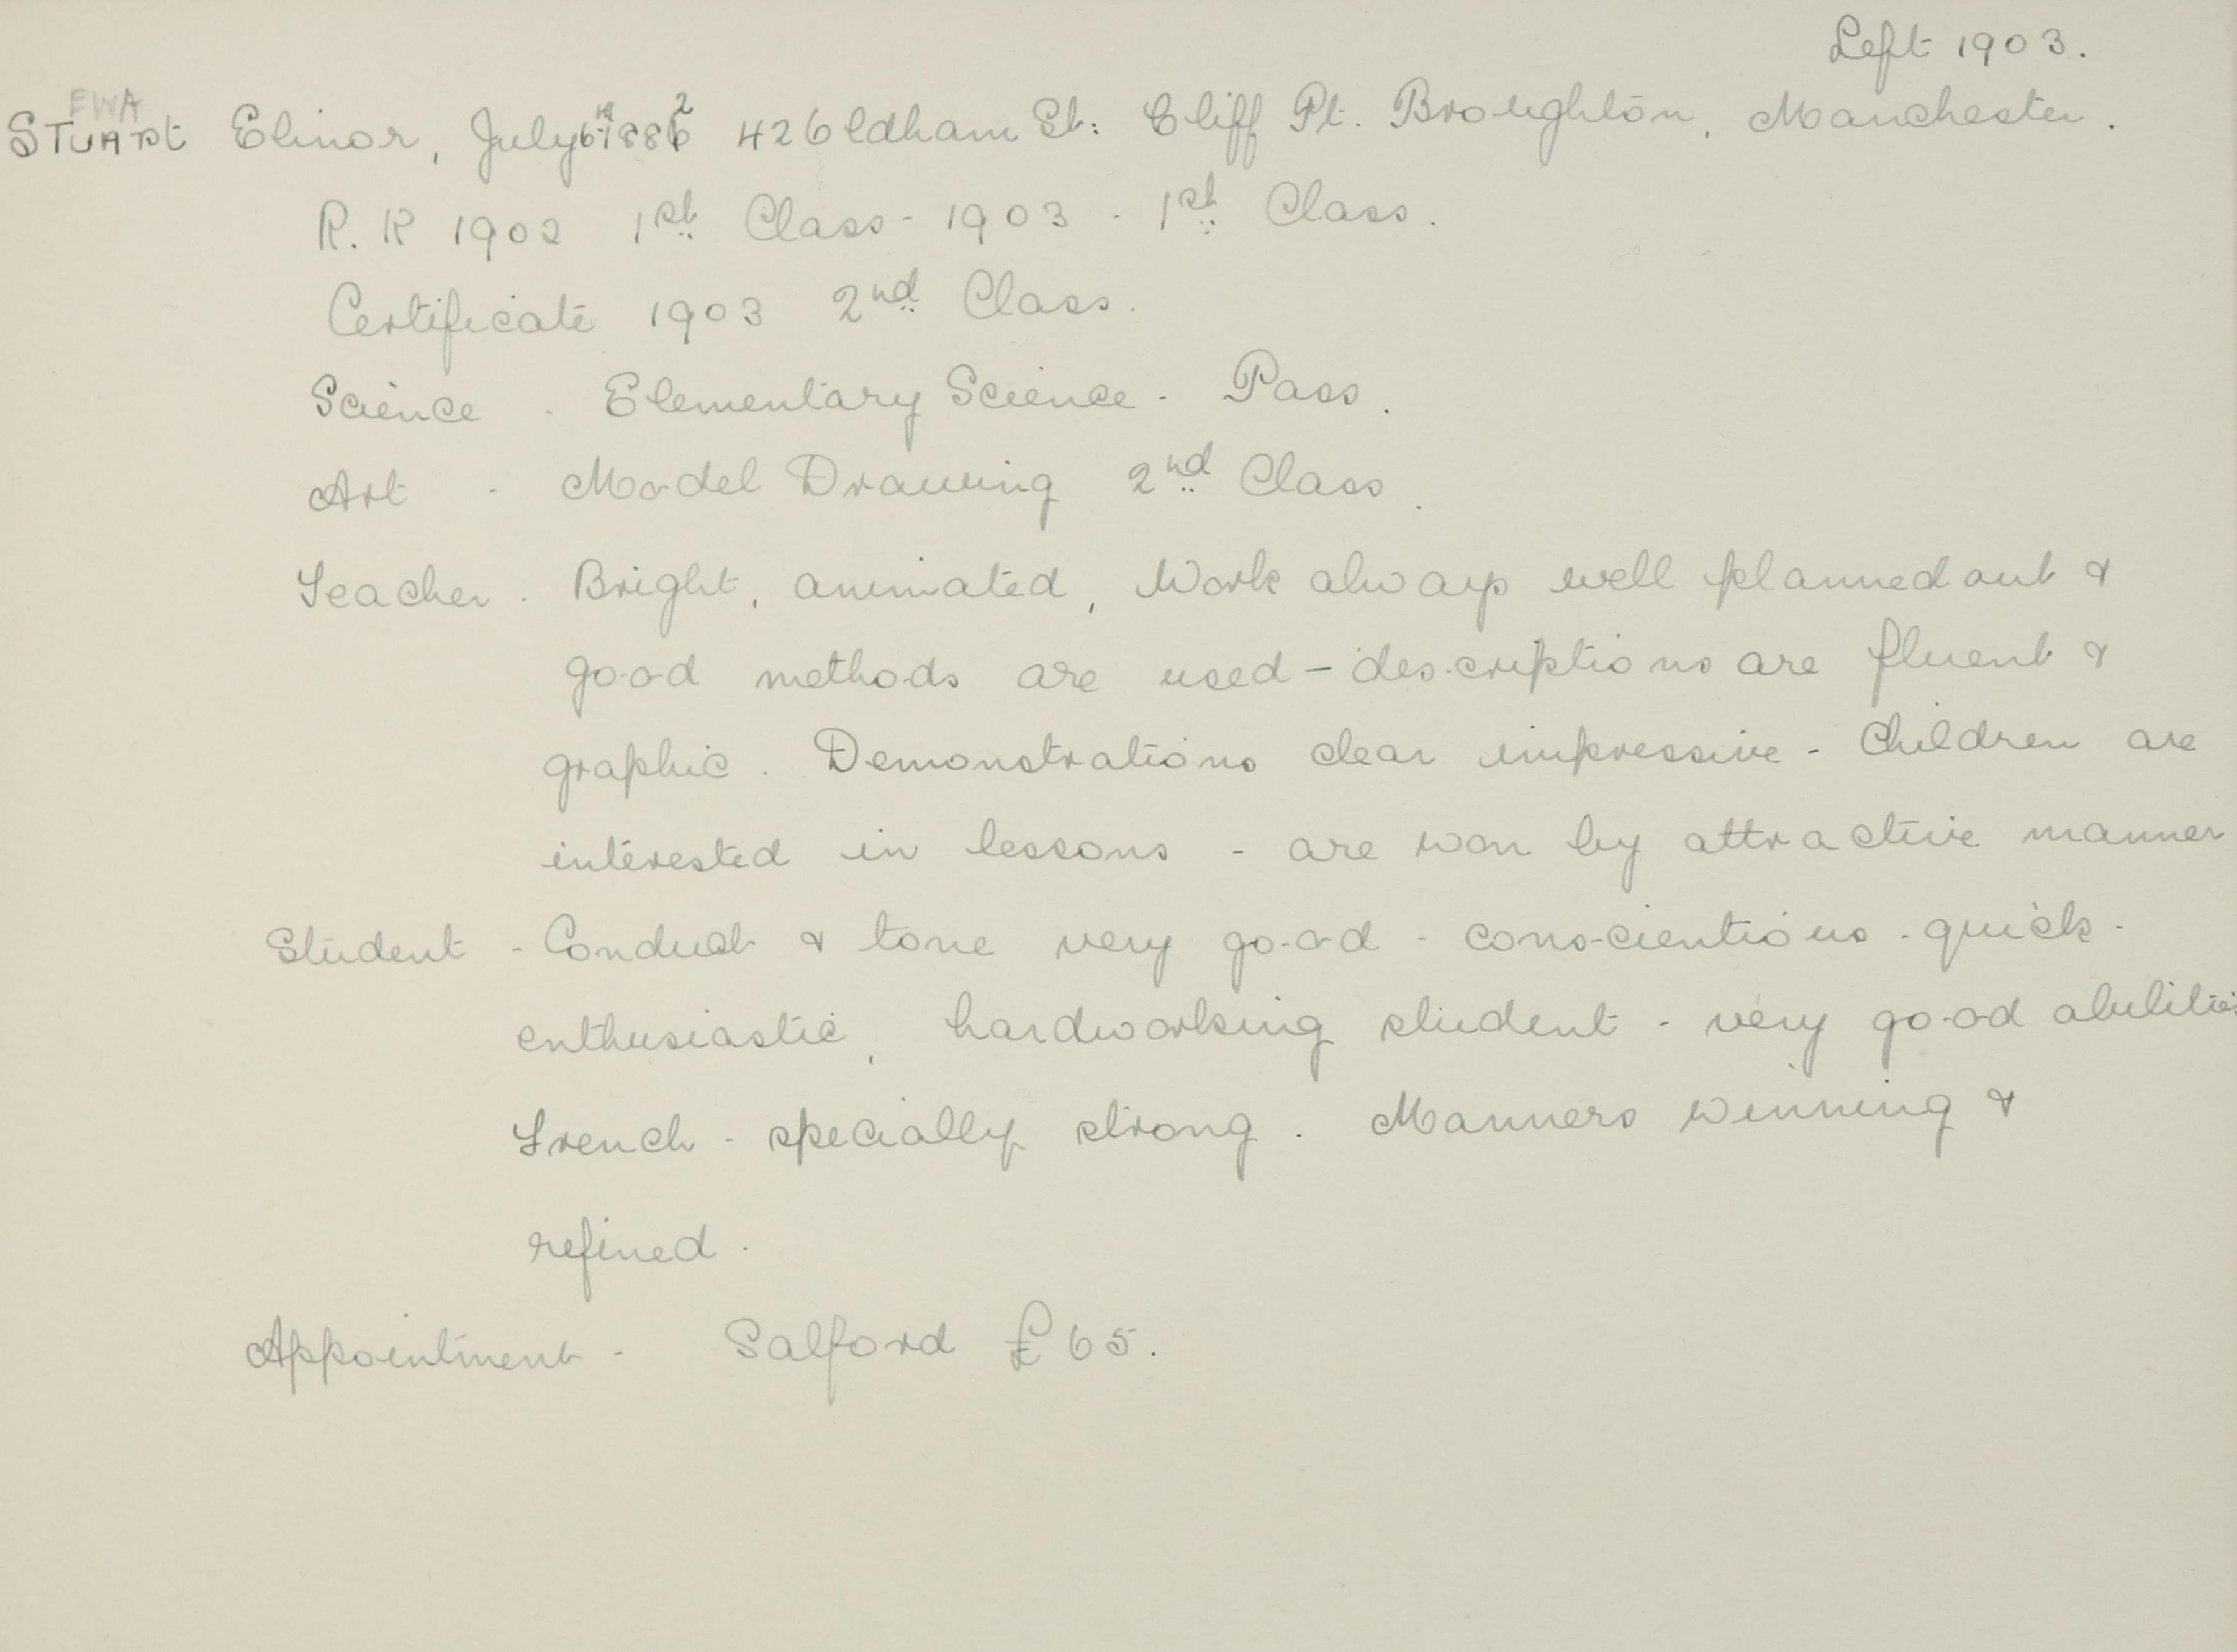 Left 1903.
EWA
STUARt Elinor, July 6th 1882 42 Oldham St: Cliff Pt. Broughton, Manchester.
R. K 1902 1st Class - 1903 - 1st Class.
Certificate 1903 2nd Class.
Science - Elementary Science - Pass.
Art - Model Drawing 2nd Class.
Teacher - Bright, animated, Work always well planned out &
good methods are used - descriptions are fluent &
graphic. Demonstrations clear impressive - Children are
interested in lessons - are won by attractive manner
Student - Conduct & tone very good - conscientious - quick -
enthusiastic, hardworking student - very good abilities
French - specially strong. Manners winning &
refined.
Appointment - Salford £65.